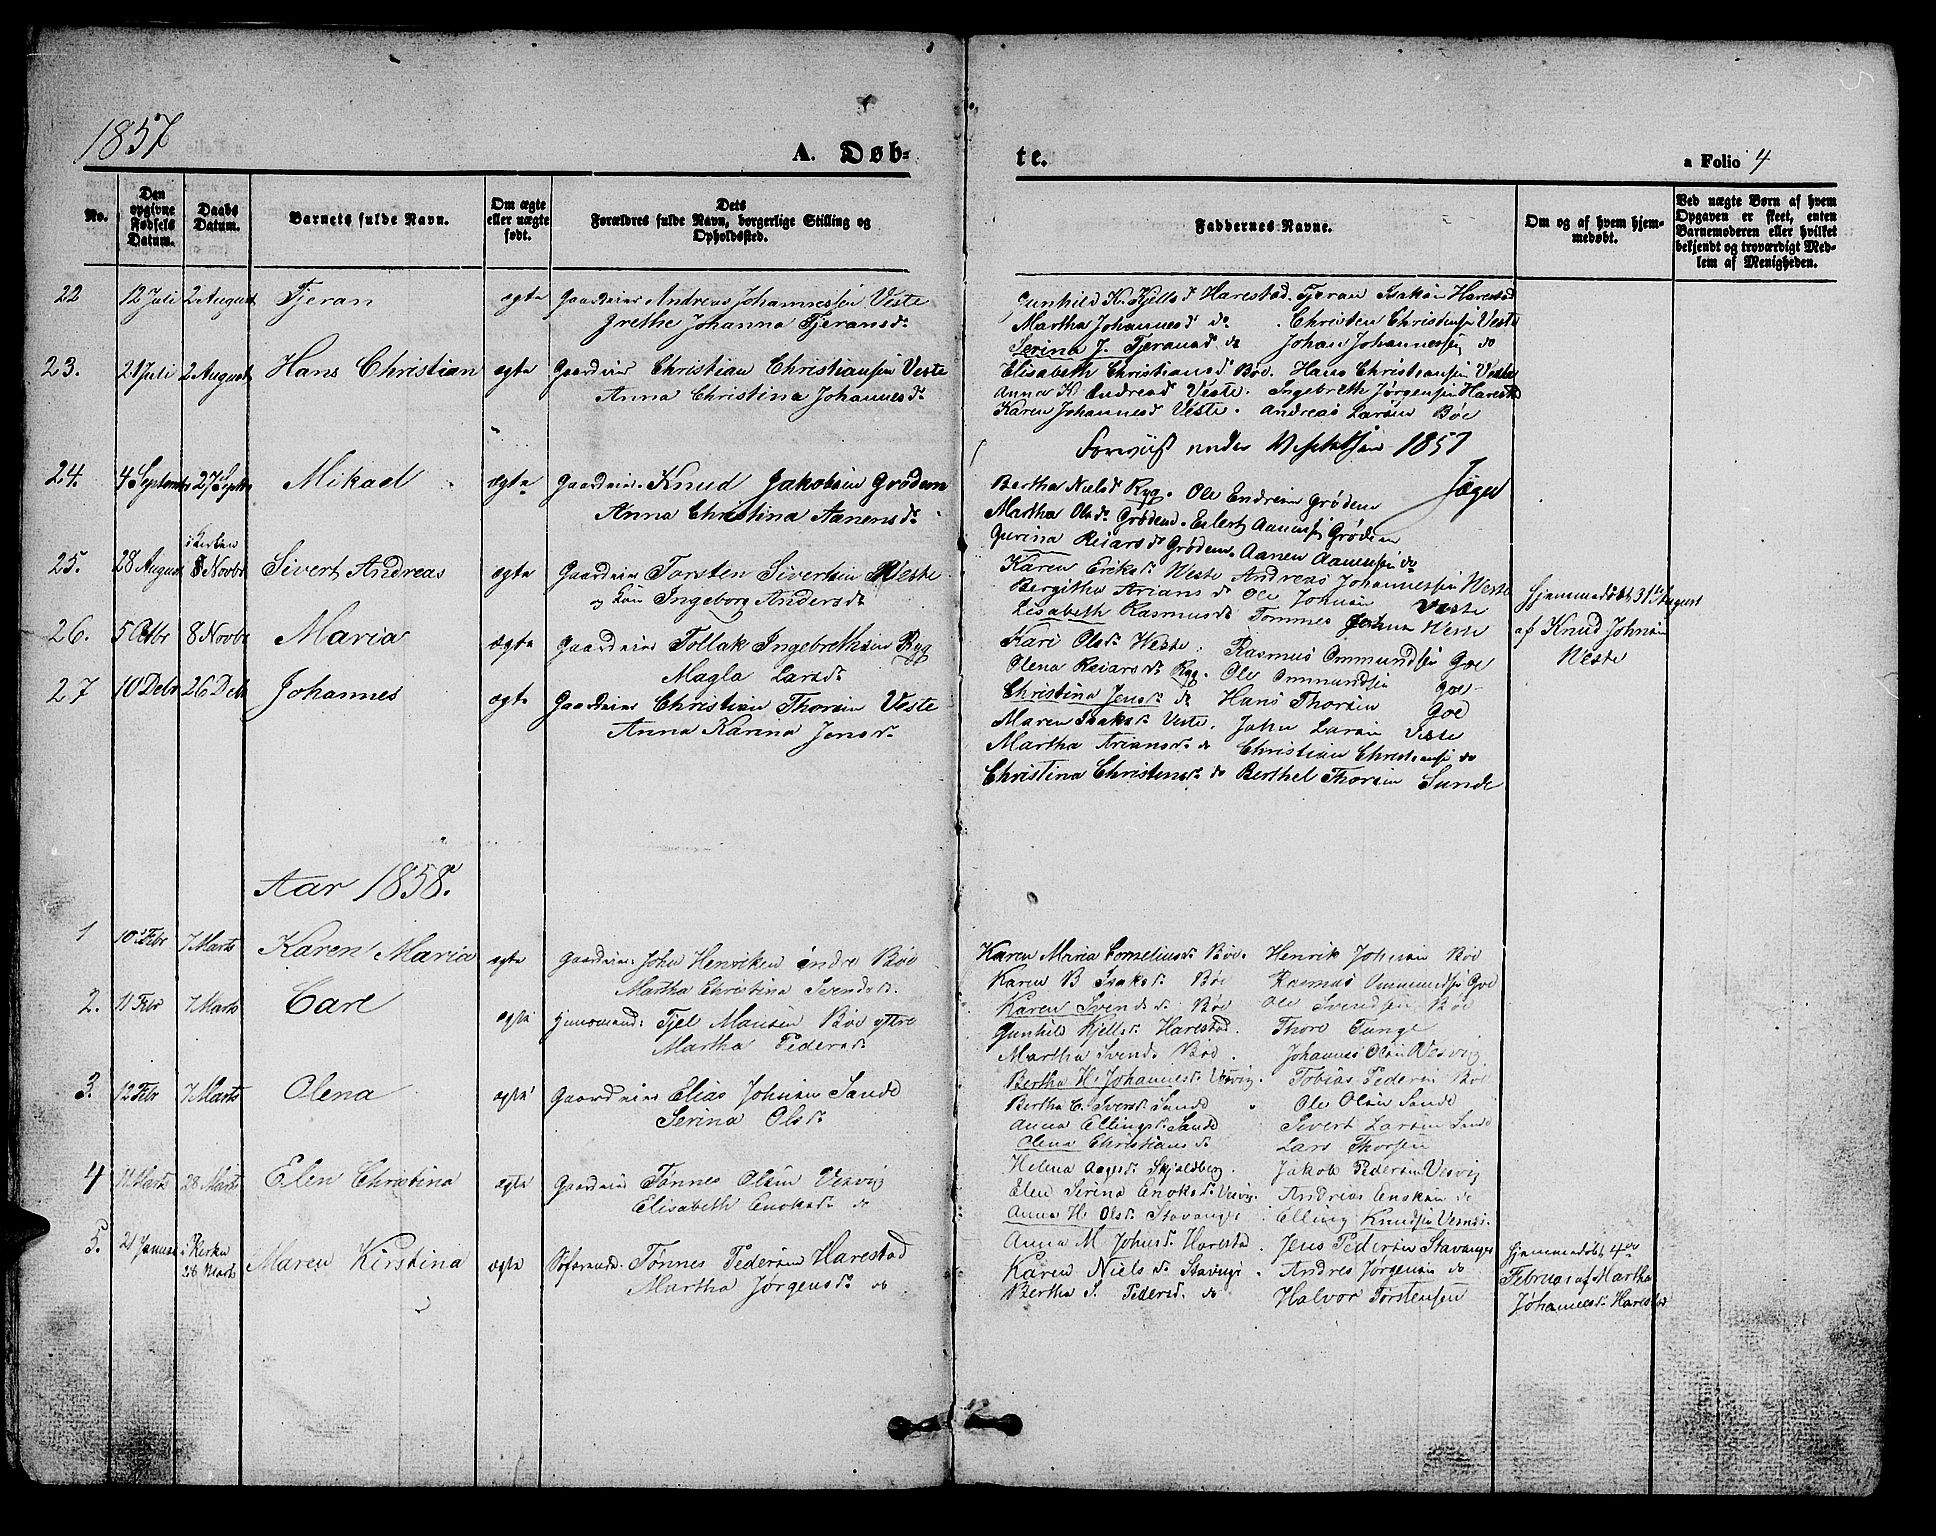 1857
A. Døb-
te.
a Folio 4
No.
Den opgivne Fødsels Datum.
Daabs Datum.
Barnets fulde Navn.
Om ægte eller uægte født.
Dets Forældres fulde Navn, borgerlige Stilling og Opholdssted.
Faddernes Navne.
Om og af hvem hjemmedøbt.
Ved uægte Børn af hvem Opgaven er skeet, enten Barnemoderen eller hvilket bekjendt og troværdigt Medlem af Menigheden.
22 12 Juli 2 August Tjeran ægte Gaardmier Andreas Johannessen Veste
Grethe Johanna Tjeransdr
Gunhild K. Kjellsd Harestad. Tjeran Isaksøn Harestad
Martha Johannesd do . Christen Christensen Veste
Serina J. Tjeransd do Johan Johannessen do
23. 21 Juli 2 August Hans Christian ægte Gaardmier Christian Christiansen Veste
Anna Christina Johannesdr
Elisabeth Christiansd Bøe. Hans Christiansen Veste
Anna K Andreasd Veste. Ingebreth Jørgensen Harestd
Karen Johannesd Veste. Andreas Larsen Bøe
1857
24. 4 Septembr 27 Septbr Mikael ægte Gaardmier Knud Jakobsen Grødem
Anna Christina Aanensdr
Bertha Nielsd Ryg. Ole Endresen Grødem
Martha Olsdr Grødem. Eilert Aanensen Grødem
Gurina Reiarsdr Grødem. Aanen Aanensen do
25. 28 August i Kirken 8 Novbr Sivert Andreas ægte Gaardmier Torsten Sivertsen Weste
og Kone Ingeborg Andersdr
Karen Eriksdr Weste Andreas Johannessen Weste
Bergitha Ariansdr do Ole Johnsen Veste
Lisabeth Rasmusdr Tommes Weste
Hjemmedøbt 31te August
af Knud Johnsen
Weste
26. 5 Octbr 8 Novbr Maria ægte Gaardmier Tollak Ingebrethsen Ryg
Magla Larsdr
Kari Olsdr Weste. Rasmus Ommundsen Goe
Olena Reiarsdr Ryg. Ole Ommundsen Goe
Christina Jensdr do Hans Thorsen Goe
27 10 Debr 26 Deb Johannes ægte Gaardmier Christian Thorsen Veste
Anna Karina Jensdr
Maren Isaksdr Veste. John Larsen Veste
Martha Ariansdr do Christian Christensen do
Christina Christensdr do Berthel Thorsen Sunde
Aar 1858.
1 10 Febr 7 Marts Karen Maria ægte Gaardmier John Henriksen indre Bøe
Martha Christina Svendsdr
Karen Maria Corneliusdr Bøe. Henrik Johnsen Bøe
Karen B Isaksdr Bøe Rasmus Ommundsen Goe
Karen Svendsdr Bøe Ole Svendsen Bøe
2. 11 Febr 7 Marts Carl ægte Huusmand Tjel Monsen Bøe yttre
Martha Pedersdr
Gunhild Kjellsdr Harestad. Thore Tunge
Martha Svendsd Bøe. Johannes Olsen Vesvig
Bertha H. Johannesdr Vesvig. Tobias Pedersen Bøe
3. 12 Febr 7 Marts Olena ægte Gaardmier Elias Johnsen Sande
Serina Olsdr
Bertha C. Sversdr Sande Ole Olsen Sande
Anna Ellingsdr Sande Sivert Larsen Sande
Olena Christiansdr Lars Thorsen
4 11 Marts 28 Marts Elen Christina ægte Gaardmier Tønnes Olsen Vesvig
Elisabeth Enoksdr do
Helena Aagesdr Skjoldberg. Jakob Pedersen Vesvig
Elen Serina Enoksdr Vesvig. Andreas Enoksen do
Anna H. Olsdr Stavanger . Elling Knudsen
5. 21 Januar i Kirken 28 Marts Maren Kirstina ægte Søfarend: Tønnes Pedersen Harestad
Martha Jørgensdr do
Anna M Johnsdr Harestad. Jens Pedersen Stavanger
Karen Nielsdr Stavanger. Andres Jørgensen do
Bertha S. Pedersd do Halvor Torstensen
Hjemmedøbt 4de
Februar af Martha
Johannesdr Harestad